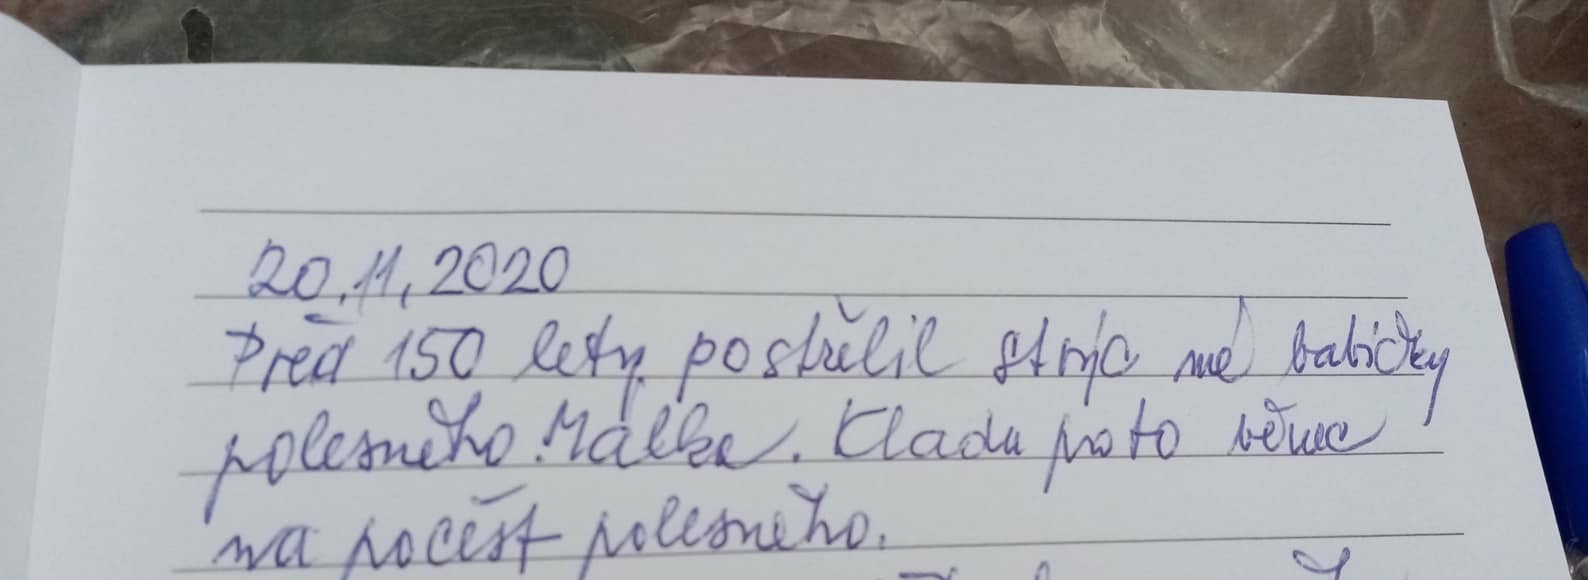 20.11.2020
Před 150 lety postřelil strýc mé babičky
polesného Málka. Kladu proto věnec
na počest polesného.